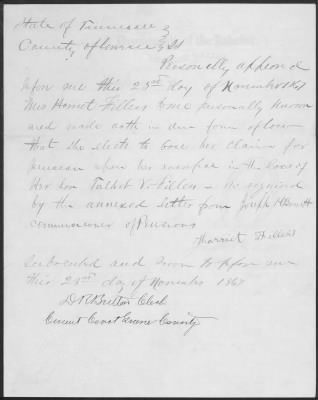 State of Tennessee
County of Greene } SS
Personally appeared
before me this 25th day of November 1867
Mrs Harriet Fillers to me personally known
and made oath in due form of law
that she elects to base her claim for
pension upon her sacrifice in the loss of
Her Son Talbot V. Fillers as required
by the annexed letter from Joseph H Barrett
commissioner of Pensions
Harriet Fillers
Subscribed and Sworn to before me
this 25th day of November 1867
D R Britton Clerk
Circuit Court Greene County